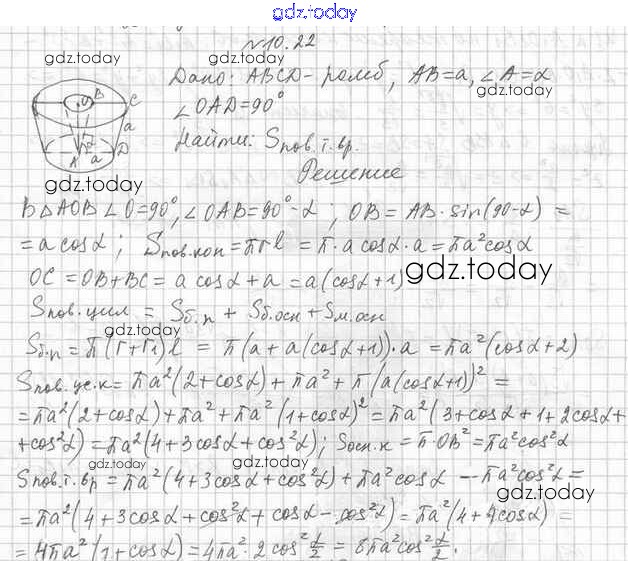 gdz.today
№10.22
gdz.today
Дано: ABCD - ромб, AB=a, ∠A=α
gdz.today
∠OAD=90°
Найти: Sпов.т.вр.
O B C a A a D
gdz.today
Решение
В △AOB ∠O=90°, ∠OAB=90°-α; OB = AB·sin(90-α) =
= a cosα; Sпов.кон = πrl = π·a cosα·a = πa²cosα
OC = OB+BC = a cosα + a = a(cosα+1)
gdz.today
Sпов.цил = Sб.п + Sб.осн + Sм.осн
gdz.today
Sб.п = π(r+r₁)l = π(a+a(cosα+1))·a = πa²(cosα+2)
Sпов.ус.к = πa²(2+cosα) + πa² + π(a(cosα+1))² =
= πa²(2+cosα) + πa² + πa²(1+cosα)² = πa²(3+cosα+1+2cosα+
+cos²α) = πa²(4+3cosα+cos²α); Sосн.к = π·OB² = πa²cos²α
gdz.today
gdz.today
Sпов.т.вр = πa²(4+3cosα+cos²α) + πa²cosα - πa²cos²α =
gdz.today
= πa²(4+3cosα+cos²α+cosα-cos²α) = πa²(4+4cosα) =
= 4πa²(1+cosα) = 4πa²·2cos²α/2 = 8πa²cos²α/2.
gdz.today